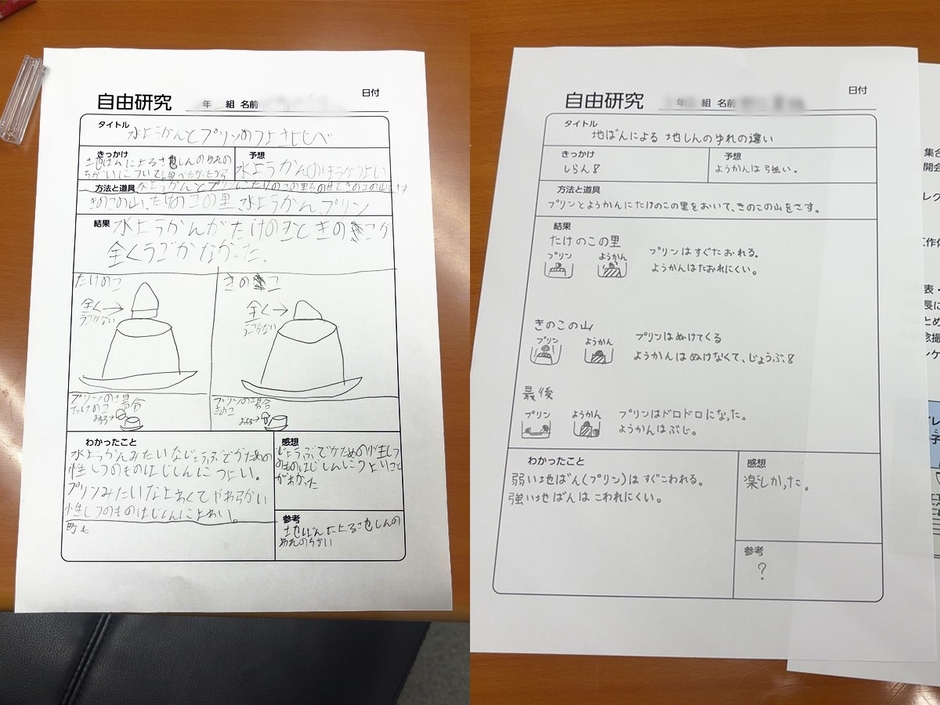 自由研究
年 組 名前
日付
タイトル
水ようかんとプリンのつよさくらべ
きっかけ
地ばんによる地しんのゆれの
ちがいについて調べたかったから
予想
水ようかんのほうがつよい
方法と道具
きのこの山、たけのこの里、水ようかん、プリン
結果
水ようかんがたけのことときのこが
全くうごかなかった。
たけのこ
全く→
うごかない
きのこ
全く→
うごかない
プリンの場合
たけのこ
プリンの場合
きのこ
わかったこと
水ようかんみたいなじょうぶでかための
性しつのものはじしんにつよい。
プリンみたいなよわくてやわらかい
性しつのものはじしんによわい。
感想
じょうぶでかためのが性しつ
のものはじしんにつよいこと
がわかった
参考
地ばんによる地しんの
ゆれのちがい
自由研究
年 組 名前
日付
タイトル
地ばんによる地しんのゆれの違い
きっかけ
しらん8
予想
ようかんは強い。
方法と道具
プリンとようかんにたけのこの里をおいて、きのこの山をさす。
結果
たけのこの里
プリン
ようかん
プリンはすぐたおれる。
ようかんはたおれにくい。
きのこの山
プリン
ようかん
プリンはぬけてくる
ようかんはぬけなくて、じょうぶ8
最後
プリン
ようかん
プリンはドロドロになった。
ようかんはぶじ。
わかったこと
弱い地ばん(プリン)はすぐこわれる。
強い地ばんはこわれにくい。
感想
楽しかった。
参考
?
集合
開会